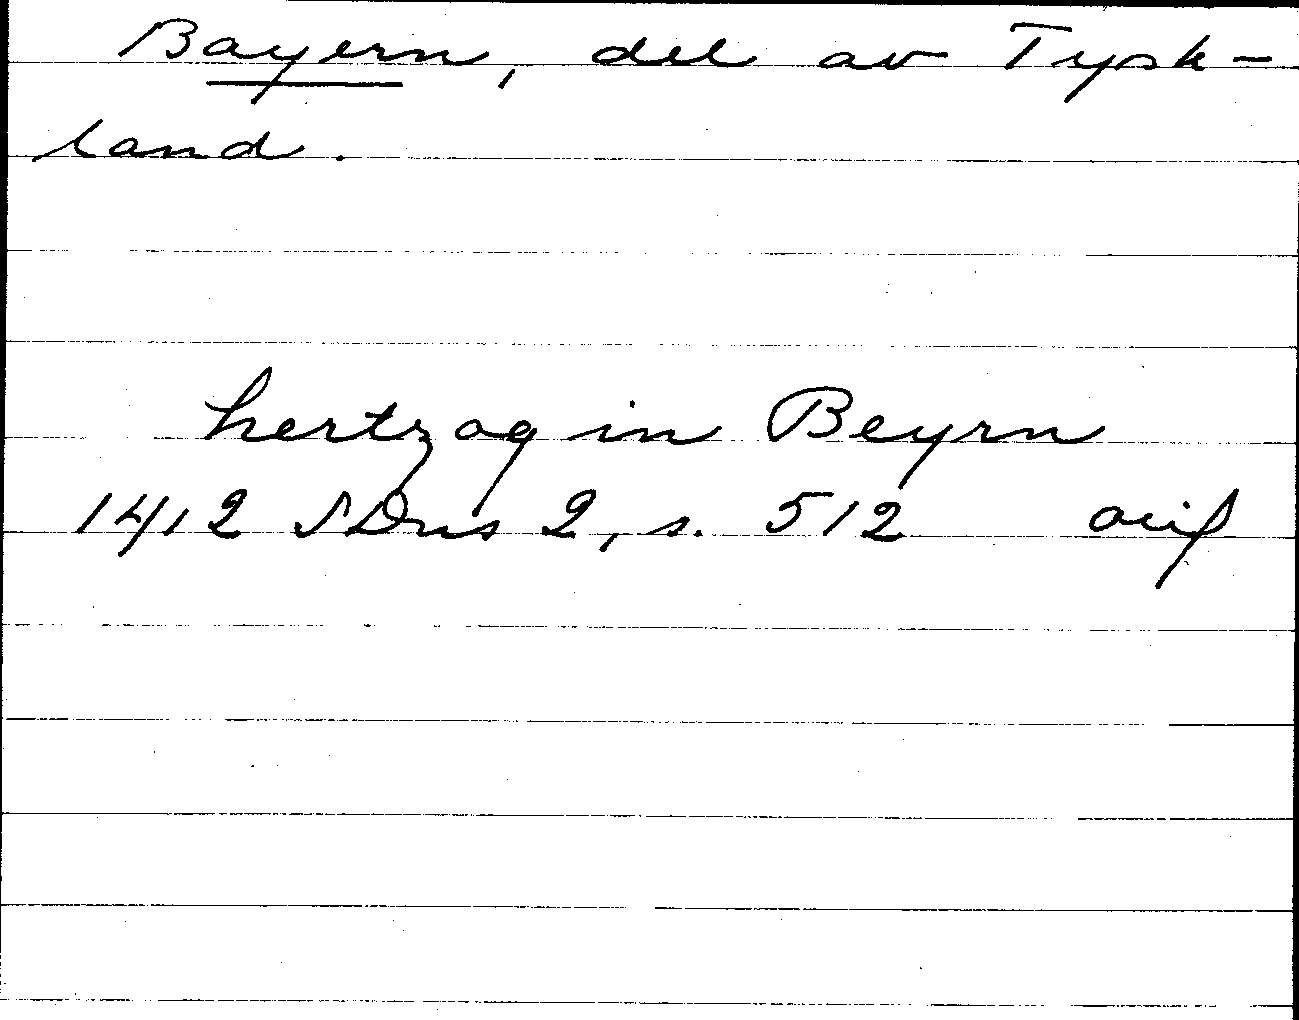 Bayern, del av Tysk-
land.
hertzog in Beyrn
1412 SDns 2, s. 512 avif